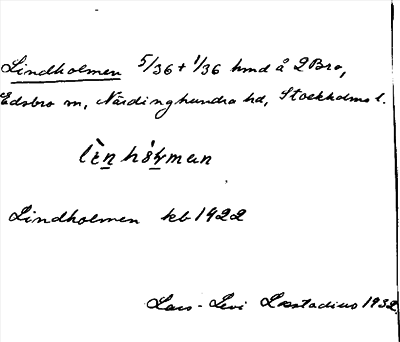 Lindholmen 5/36 + 1/36 hmd å 2 Bro,
Edsbro sn, Närdinghundra hd, Stockholms l.
Lindholmen kb 1922
Lars-Levi Læstadius 1932.